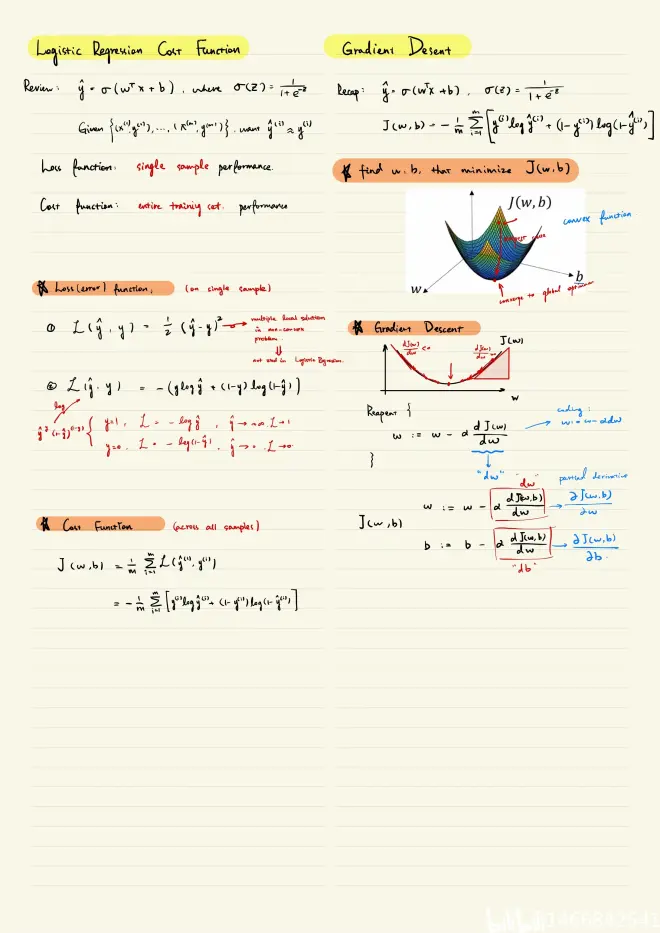 Logistic Regression Cost Function
Review: ŷ = σ(wᵀx + b), where σ(z) = 1/(1+e⁻ᶻ)
Given {(x⁽¹⁾,y⁽¹⁾),...,(x⁽ᵐ⁾,y⁽ᵐ⁾)}, want ŷ⁽ⁱ⁾ ≈ y⁽ⁱ⁾
Loss function: single sample performance.
Cost function: entire training set. performance
Loss (error) function: (on single sample)
① L(ŷ, y) = 1/2 (ŷ-y)²
multiple local solution
in non-convex
problem.
⇓
not used in Logistic Regression.
② L(ŷ, y) = -(y log ŷ + (1-y) log(1-ŷ))
log
ŷʸ (1-ŷ)⁽¹⁻ʸ⁾
y=1, L = -log ŷ,
y=0, L = -log(1-ŷ),
Cost Function (across all samples)
J(w,b) = 1/m Σᵢ₌₁ᵐ L(ŷ⁽ⁱ⁾, y⁽ⁱ⁾)
= -1/m Σᵢ₌₁ᵐ [y⁽ⁱ⁾ log ŷ⁽ⁱ⁾ + (1-y⁽ⁱ⁾) log(1-ŷ⁽ⁱ⁾)]
Gradient Desent
Recap: ŷ = σ(wᵀx + b), σ(z) = 1/(1+e⁻ᶻ)
J(w,b) = -1/m Σᵢ₌₁ᵐ [y⁽ⁱ⁾ log ŷ⁽ⁱ⁾ + (1-y⁽ⁱ⁾) log(1-ŷ⁽ⁱ⁾)]
find w.b. that minimize J(w,b)
J(w, b)
convex function
w
b
converge to global
Gradient Descent
dJ(w)/dw <0
dJ(w)/dw
J(w)
w
Reapeat {
w := w - α dJ(w)/dw
coding:
w := w - αdw
}
"dw"
"dw"
partial derivative
w := w - α dJ(w,b)/dw → ∂J(w,b)/∂w
J(w,b)
b := b - α dJ(w,b)/dw → ∂J(w,b)/∂b.
"db"